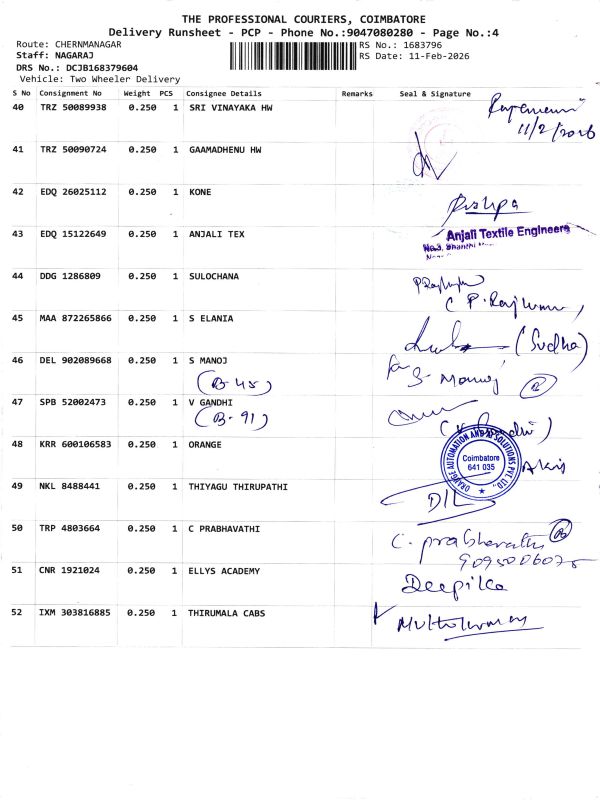 THE PROFESSIONAL COURIERS, COIMBATORE
Delivery Runsheet - PCP - Phone No.:9047080280 - Page No.:4
Route: CHERNMANAGAR
RS No.: 1683796
Staff: NAGARAJ
RS Date: 11-Feb-2026
DRS No.: DCJB168379604
Vehicle: Two Wheeler Delivery
S No Consignment No Weight PCS Consignee Details Remarks Seal & Signature
40 TRZ 50089938 0.250 1 SRI VINAYAKA HW
11/2/2026
41 TRZ 50090724 0.250 1 GAAMADHENU HW
42 EDQ 26025112 0.250 1 KONE
Pushpa
43 EDQ 15122649 0.250 1 ANJALI TEX
Anjali Textile Engineers
No.3, Shanthi
44 DDG 1286809 0.250 1 SULOCHANA
45 MAA 872265866 0.250 1 S ELANIA
(Sudha)
46 DEL 902089668 0.250 1 S MANOJ
(B-45)
for S. Manoj
47 SPB 52002473 0.250 1 V GANDHI
(B-91)
48 KRR 600106583 0.250 1 ORANGE
ORANGE AUTOMATION AND AI SOLUTIONS PVT LTD.,
Coimbatore
641 035
49 NKL 8488441 0.250 1 THIYAGU THIRUPATHI
50 TRP 4803664 0.250 1 C PRABHAVATHI
C. prabhavathi
9095006075
51 CNR 1921024 0.250 1 ELLYS ACADEMY
Deepika
52 IXM 303816885 0.250 1 THIRUMALA CABS